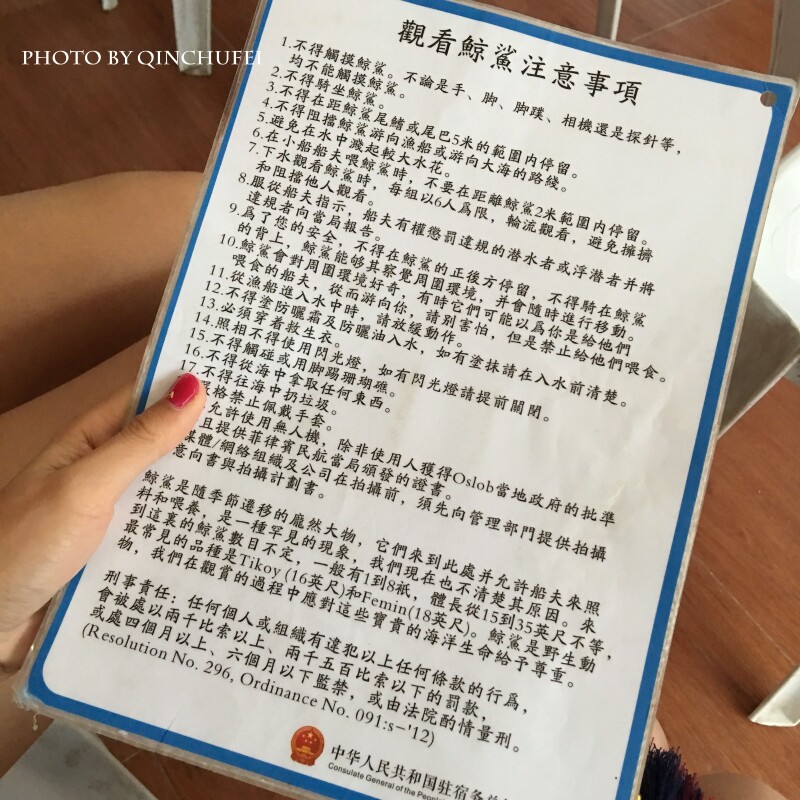 PHOTO BY QINCHUFEI
觀看鯨鯊注意事項
1.不得觸摸鯨鯊。不論是手、脚、脚蹼、相機還是探針等，
均不能觸摸鯨鯊。
2.不得騎坐鯨鯊。
3.不得在距鯨鯊尾鰭或尾巴5米的範圍内停留。
4.不得阻擋鯨鯊游向漁船或游向大海的路綫。
5.避免在水中濺起較大水花。
6.在小船船夫喂鯨鯊時，不要在距離鯨鯊2米範圍内停留。
7.下水觀看鯨鯊時，每組以6人爲限，輪流觀看，避免擁擠
和阻擋他人觀看。
8.服從船夫指示，船夫有權懲罰違規的潜水者或浮潜者并將
違規者向當局報告。
9.爲了您的安全，不得在鯨鯊的正後方停留，不得騎在鯨鯊
的背上，鯨鯊能够其察覺周圍環境，并會隨時進行移動。
10.鯨鯊會對周圍環境好奇，有時它們可能以爲你是給他們
喂食的船夫，從而游向你，請别害怕，但是禁止給他們喂食。
11.從漁船進入水中時，請放緩動作。
12.不得塗防曬霜及防曬油入水，如有塗抹請在入水前清楚。
13.必須穿着救生衣。
14.照相不得使用閃光燈，如有閃光燈請提前關閉。
15.不得觸碰或用脚踢珊瑚礁。
16.不得從海中拿取任何東西。
17.不得往海中扔垃圾。
格禁止佩戴手套。
允許使用無人機，除非使用人獲得Oslob當地政府的批准
且提供菲律賓民航當局頒發的證書。
媒體/網絡組織及公司在拍攝前，須先向管理部門提供拍攝
意向書與拍攝計劃書。
鯨鯊是隨季節遷移的龐然大物，它們來到此處并允許船夫來照
料和喂養，是一種罕見的現象，我們現在也不清楚其原因。來
到這裏的鯨鯊數目不定，一般有1到8祇，體長從15到35英尺不等，
最常見的品種是Tikoy (16英尺)和Femin(18英尺)。鯨鯊是野生動
物，我們在觀賞的過程中應對這些寶貴的海洋生命給予尊重。
刑事責任：任何個人或組織有違犯以上任何條款的行爲，
會被處以兩千比索以上、兩千五百比索以下的罰款，
或處四個月以上、六個月以下監禁，或由法院酌情量刑。
(Resolution No. 296, Ordinance No. 091:s-'12)
中华人民共和国驻宿务总
Consulate General of the People